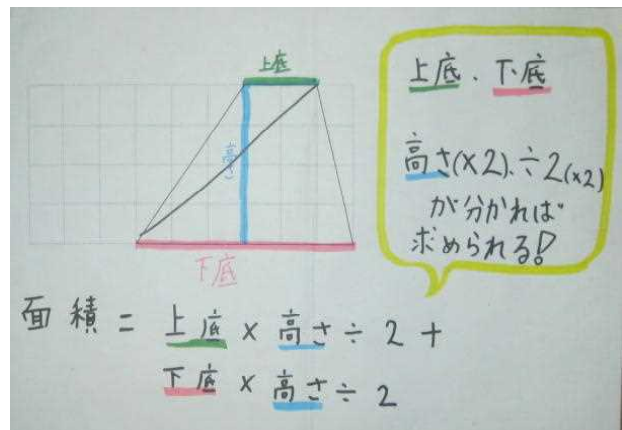 上底
高さ
下底
上底、下底
高さ(×2)、÷2(×2)
が分かれば
求められる!
面積=上底×高さ÷2+
下底×高さ÷2